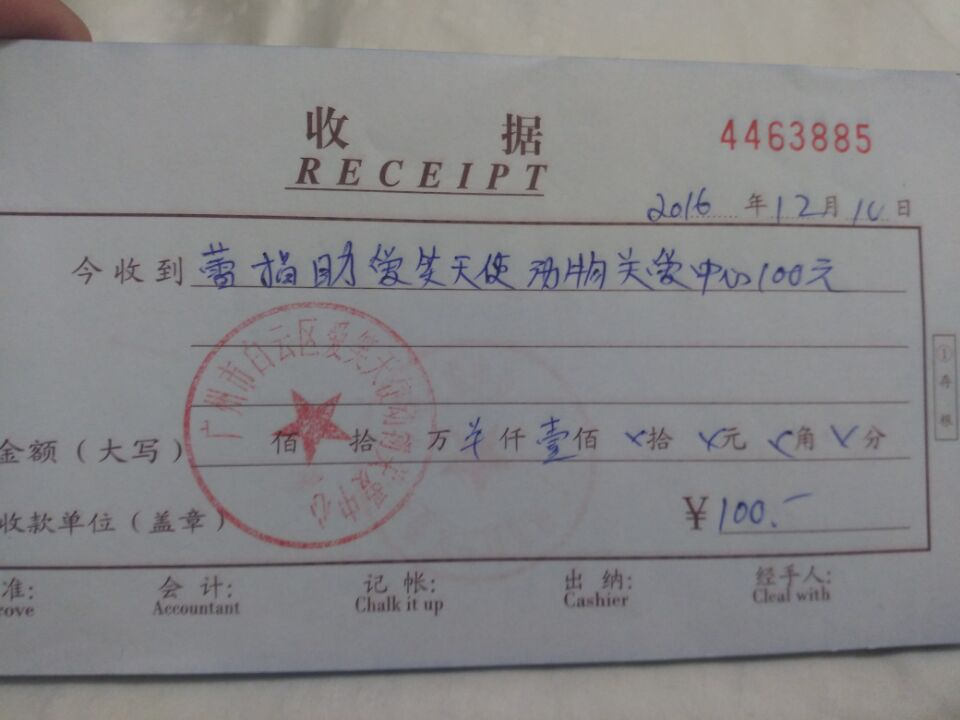 收据
4463885
RECEIPT
2016年12月10日
今收到 蕾捐助爱笑天使动物关爱中心100元
广州市白云区爱笑天使动物关爱中心
①存根
金额(大写) 佰 拾 万 仟壹佰 拾 元 角 分
收款单位(盖章) ¥100.-
准: 会计: 记帐: 出纳: 经手人:
rove Accountant Chalk it up Cashier Cleal with